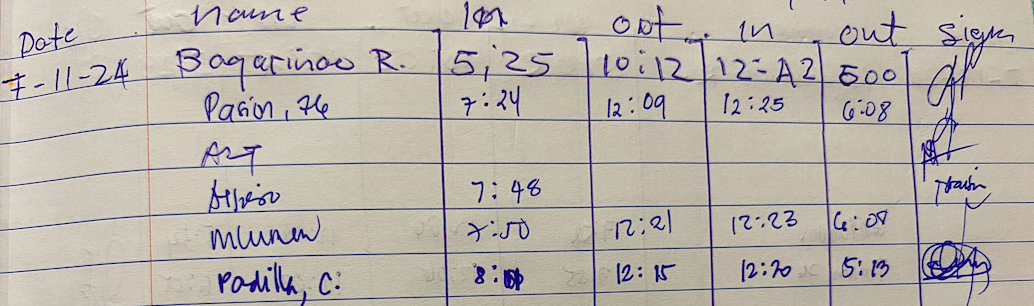 Date name In out in out Sign
7-11-24 Bagarinao R. 5:25 10:12 12-A2 500
Pasion, 7:24 12:09 12:25 6:08
7:48
7:50 12:21 12:23 6:07
Padilla, C: 8: 12:15 12:20 5:13